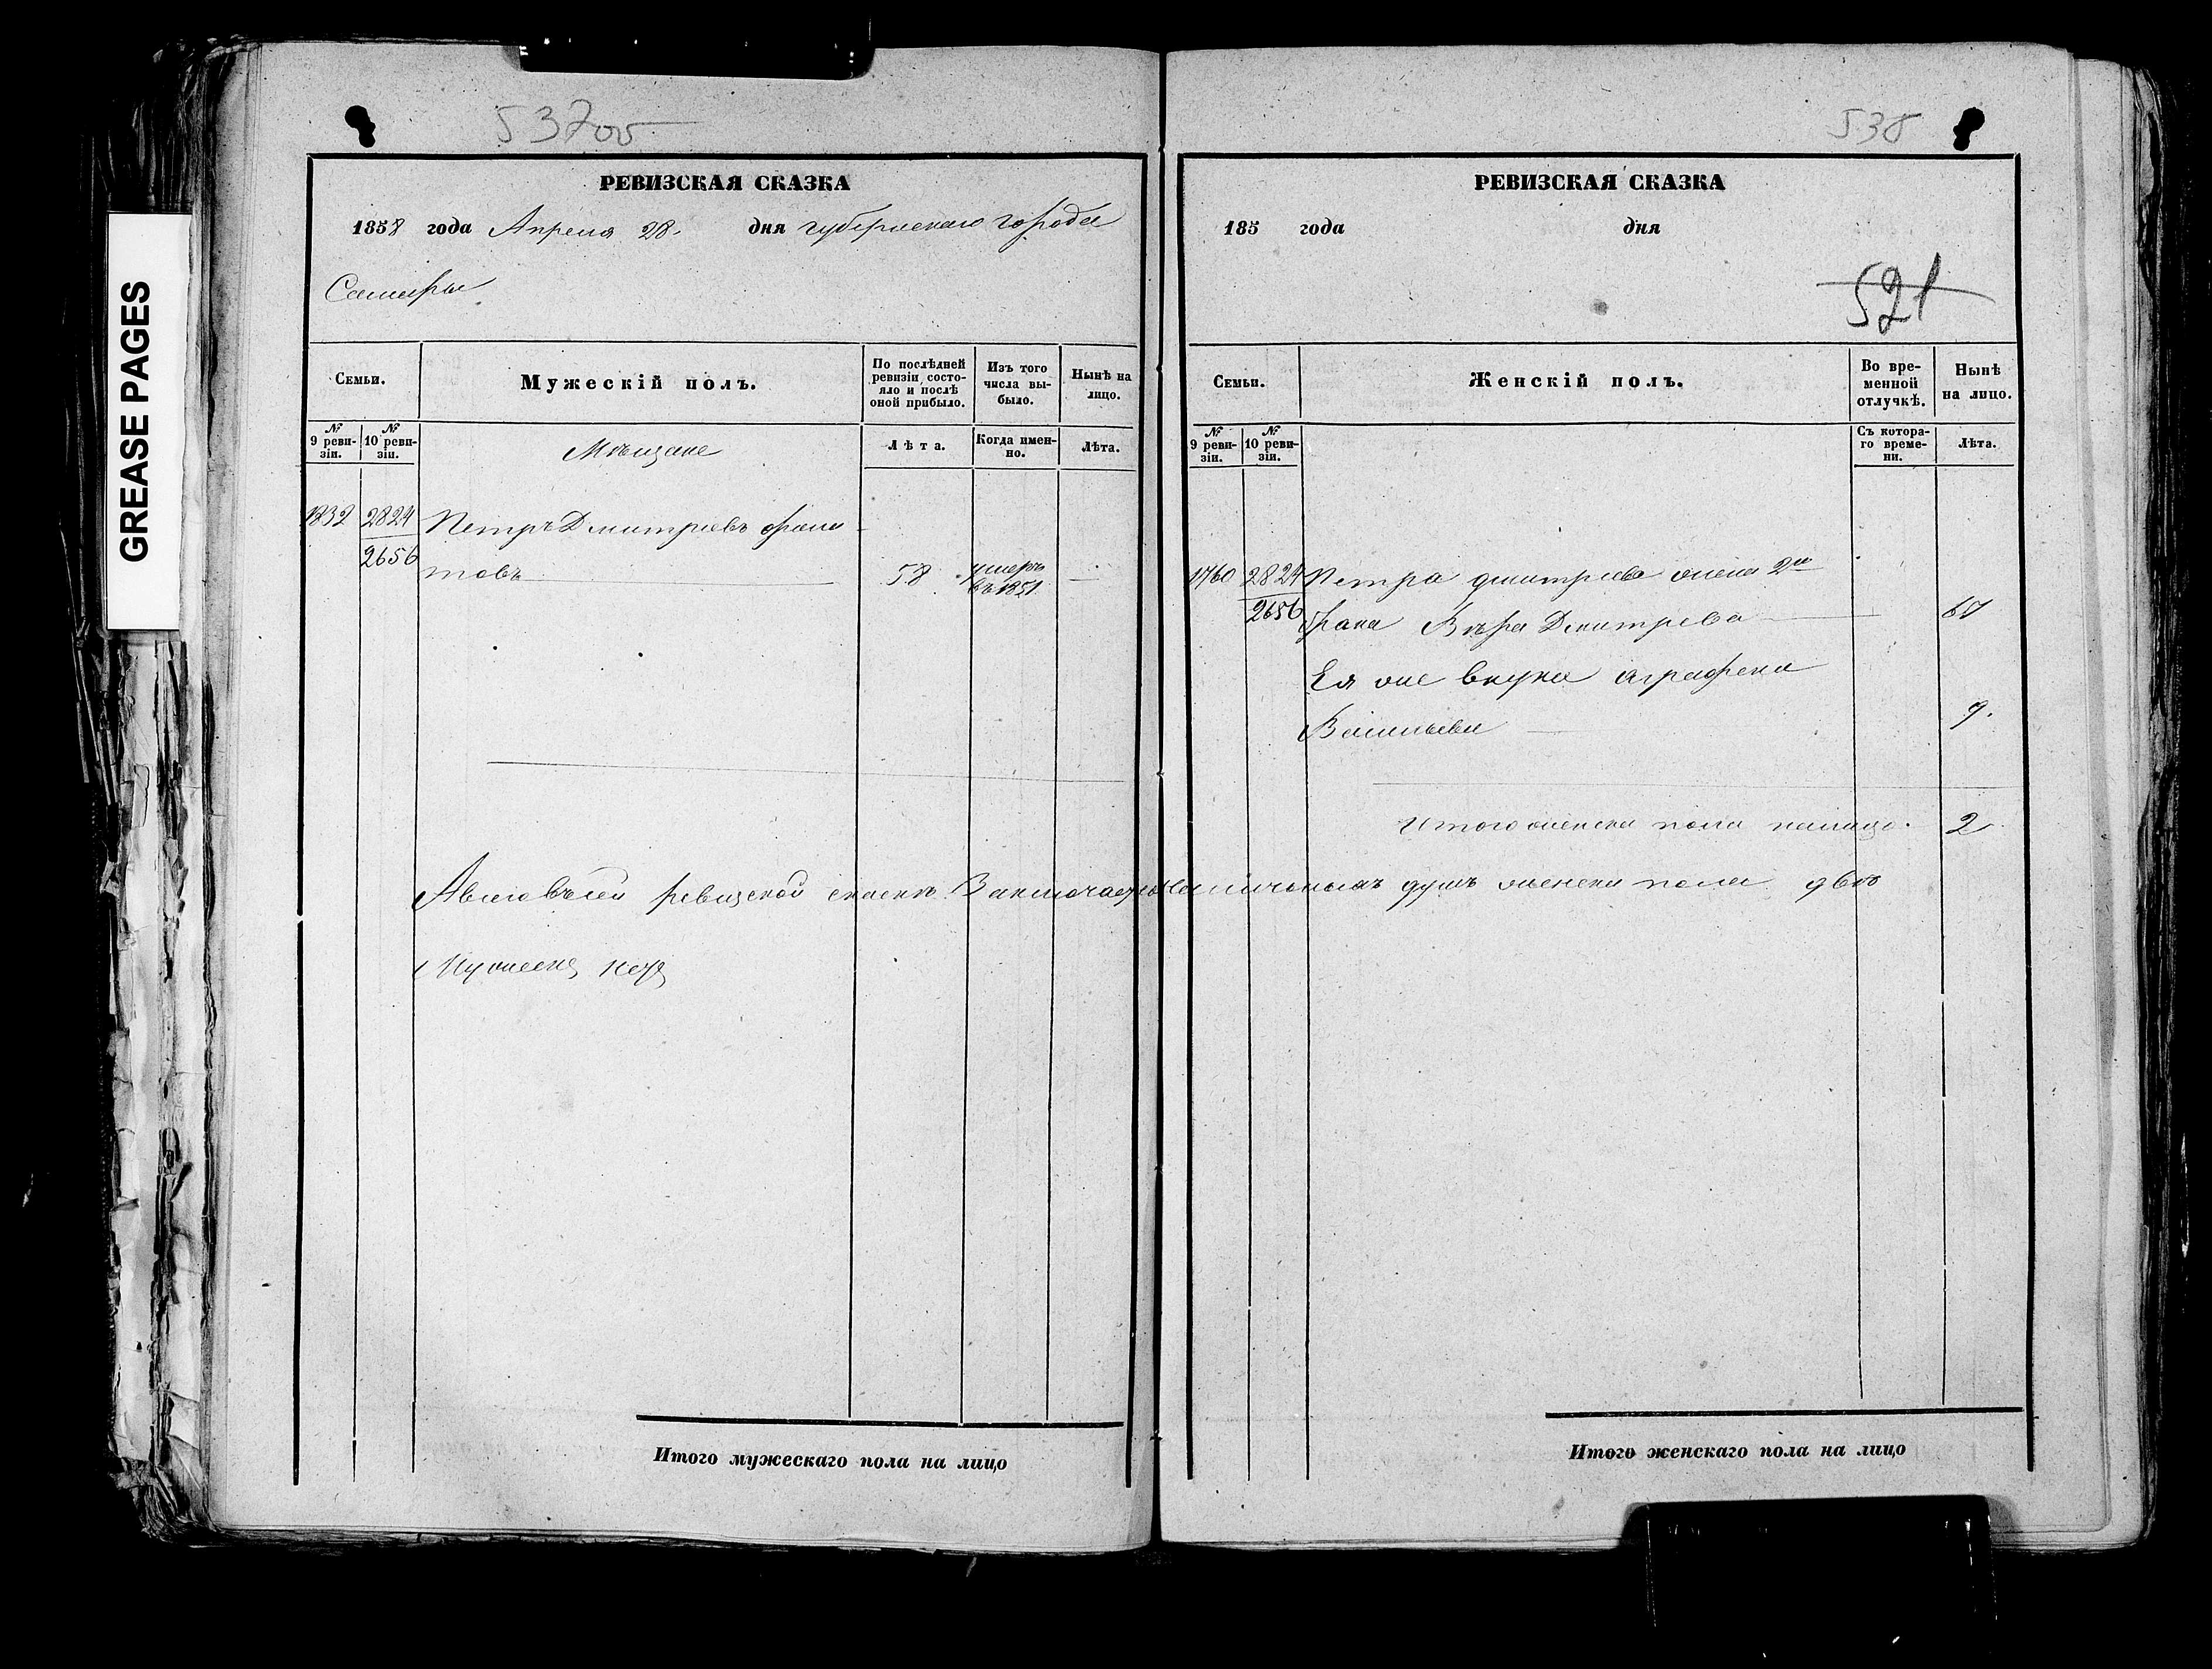 537 об
РЕВИЗСКАЯ СКАЗКА
1858 года Апреля 28. дня губернскаго города
Самары
Семьи.
Мужескій полъ.
По послѣдней ревизіи состояло и послѣ оной прибыло.
Изъ того числа выбыло.
Нынѣ на лицо.
№ 9 ревизіи.
№ 10 ревизіи.
Мѣщане
Лѣта.
Когда именно.
Лѣта.
1832 2824 Петръ Дмитріевъ
2656 товъ 58 умеръ въ 1851
Авсего всей ревизской сказкѣ Заключается наличныхъ душъ женска пола двѣ
Мужеска
Итого мужескаго пола на лицо
538
РЕВИЗСКАЯ СКАЗКА
185 года дня
521
Семьи.
Женскій полъ.
Во временной отлучкѣ.
Нынѣ на лицо.
№ 9 ревизіи.
№ 10 ревизіи.
Съ котораго времени.
Лѣта.
1760 2824 Петра Дмитріева жена 2го
2656 брака Вѣра Дмитріева
Ея же внука Аграфена
Васильева 9.
Итого женска пола налицо. 2
Итого женскаго пола на лицо
GREASE PAGES